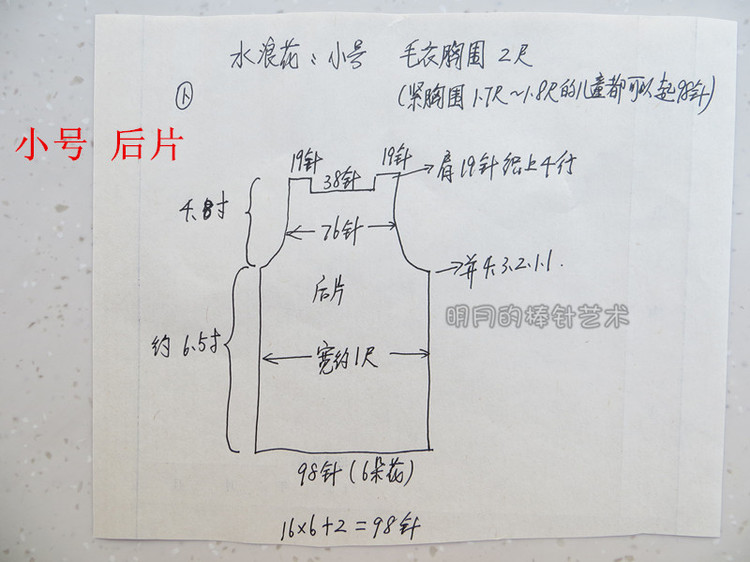 水浪花：小号 毛衣胸围2尺
(紧胸围1.7尺～1.8尺的儿童都可以起98针)
小号 后片
19针 38针 19针 肩19针织上4行
4.8寸
76针
并4.3.2.1.1.
后片
明月的棒针艺术
约6.5寸
宽约1尺
98针(6朵花)
16×6+2=98针